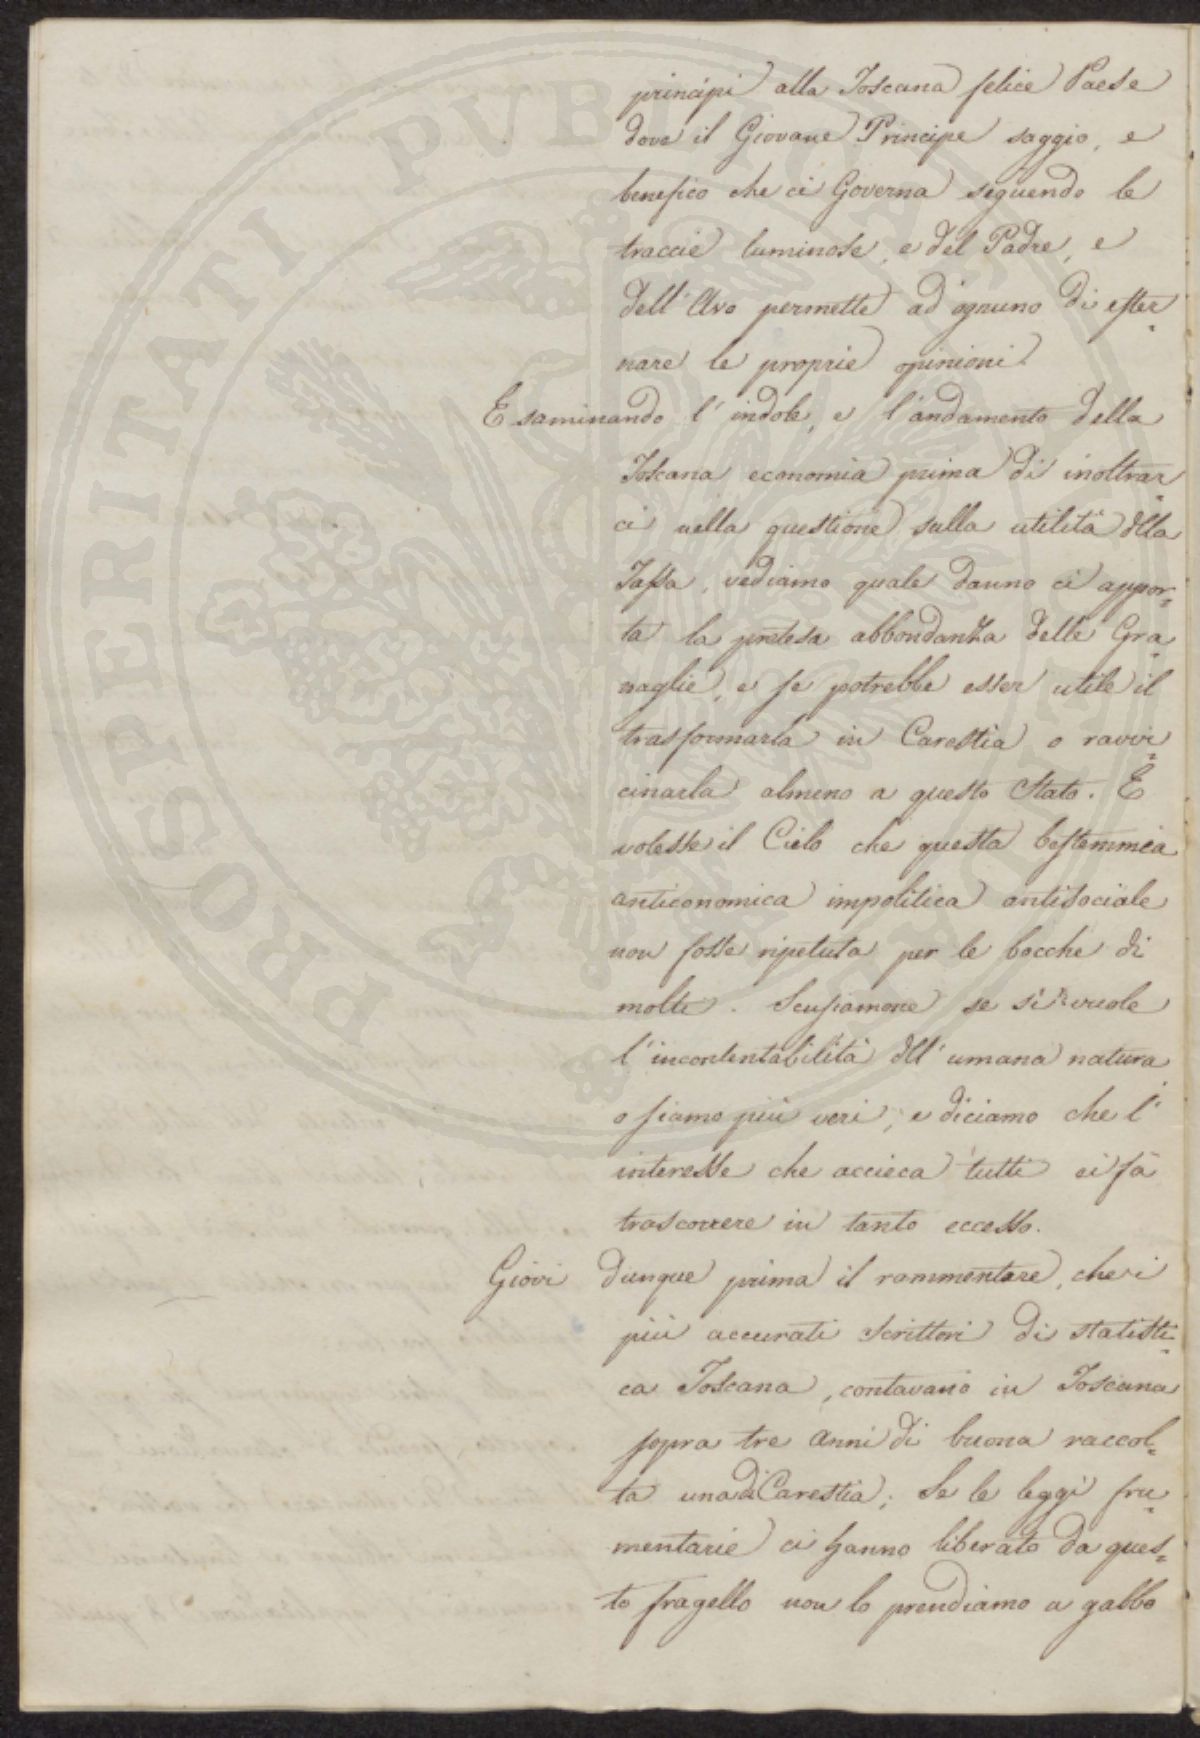 principi alla Toscana felice Paese
dove il Giovane Principe saggio, e
benefico che ci Governa seguendo le
traccie luminose, e del Padre, e
dell'Avo permette ad ognuno di ester=
nare le proprie opinioni
Esaminando l'indole, e l'andamento della
Toscana economia prima di inoltrar=
ci nella questione sulla utilità dlla
Tassa, vediamo quale danno ci appor=
ta la pretesa abbondanza delle Gra=
naglie, e se potrebbe esser utile il
trasformarla in Carestia o ravvi=
cinarla almeno a questo Stato. E
volesse il Cielo che questa bestemmia
anticonomica impolitica antisociale
non fosse ripetuta per le bocche di
molti. Scusiamone se si vuole
l'incontentabilità dll'umana natura
o siamo più veri, e diciamo che l'
interesse che accieca tutti ci fà
trascorrere in tanto eccesso.
Giovi dunque prima il rammentare, che i
più accurati Scrittori di statisti=
ca Toscana, contavano in Toscana
sopra tre anni di buona raccol=
ta una di Carestia; Se le leggi fru=
mentarie ci hanno liberato da ques=
to fragello non lo prendiamo a gabbo
PROSPERITATI PVBLICAE